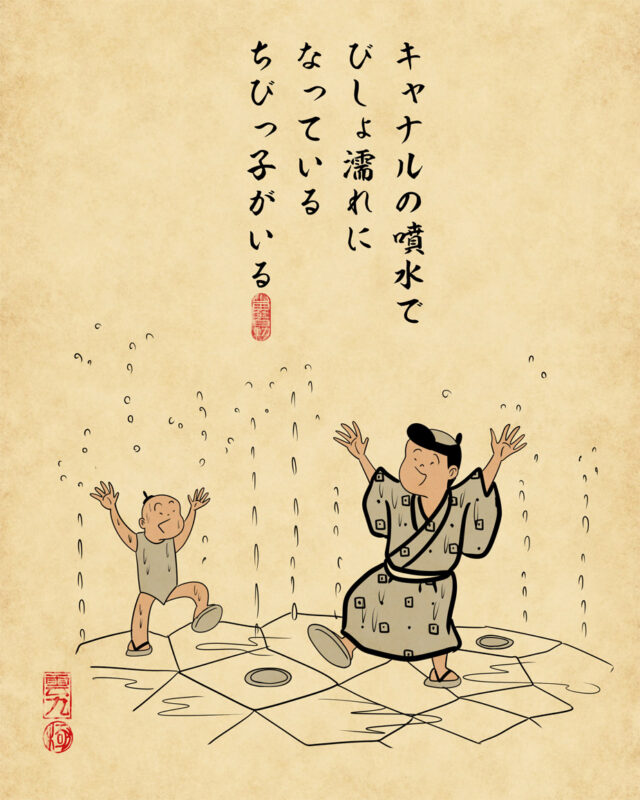 キャナルの噴水で
びしょ濡れに
なっている
ちびっ子がいる